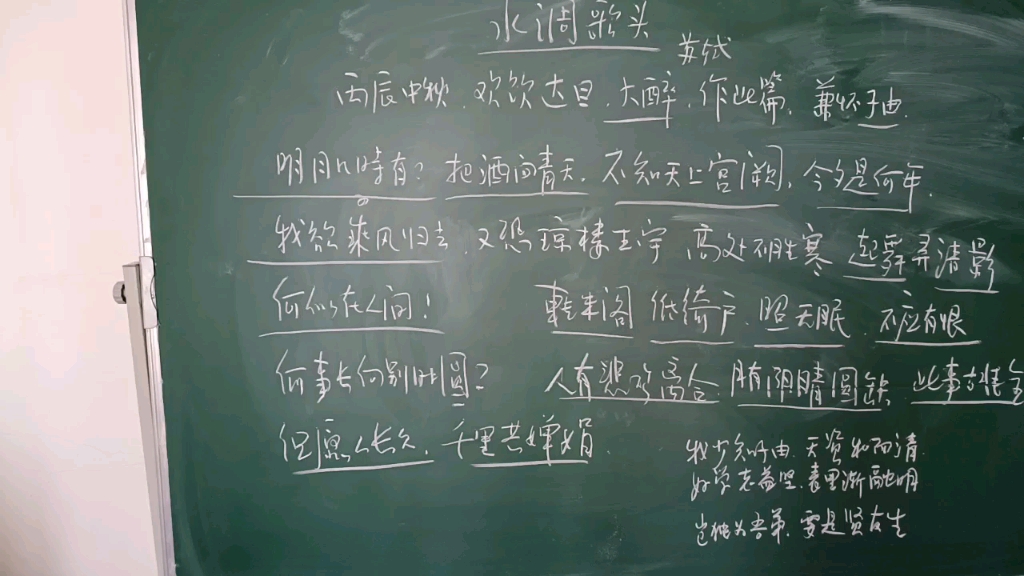 水调歌头
苏轼
丙辰中秋,欢饮达旦,大醉,作此篇,兼怀子由.
明月几時有?把酒问青天.不知天上宫阙,今夕是何年.
我欲乘风归去,又恐琼楼玉宇 高处不胜寒 起舞弄清影
何似在人间! 轉朱阁 低绮户,照无眠.不应有恨
何事长向别时圆? 人有悲欢离合 月有阴晴圆缺 此事古难全
但愿人长久,千里共婵娟.
我少知子由.天资和而清.
好学老益坚.表里渐融明
岂独为吾弟,要是贤友生